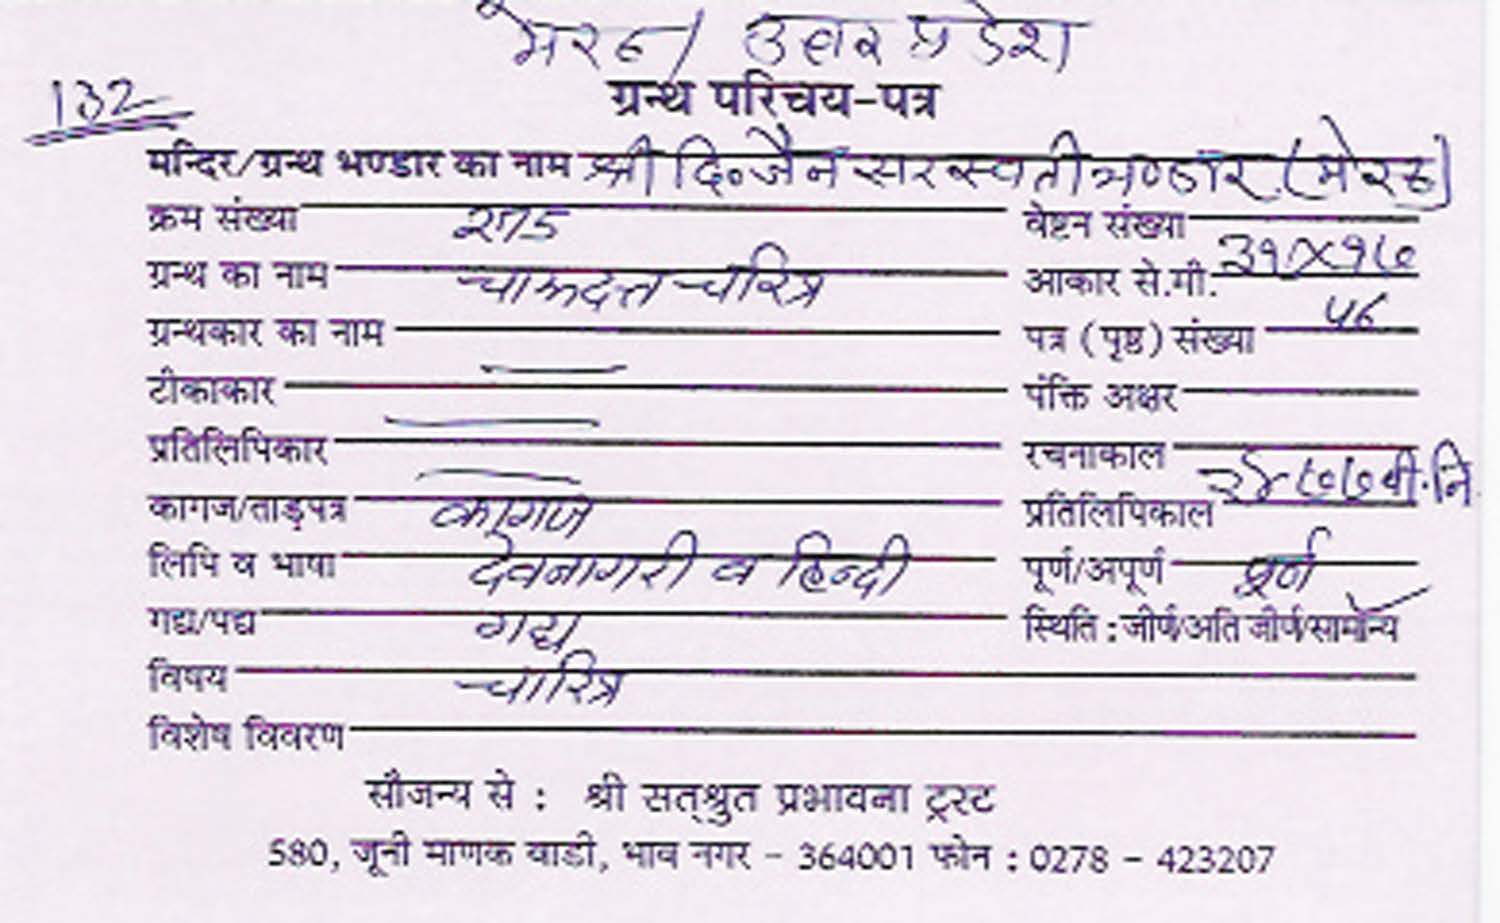 मेरठ / उत्तर प्रदेश
ग्रन्थ परिचय-पत्र
132
मन्दिर/ग्रन्थ भण्डार का नाम श्री दि०जैन सरस्वती भण्डार (मेरठ)
क्रम संख्या 275 वेष्टन संख्या
ग्रन्थ का नाम चारुदत्त चरित्र आकार से.मी. ३१X१७
ग्रन्थकार का नाम — पत्र (पृष्ठ) संख्या ५६
टीकाकार — पंक्ति अक्षर
प्रतिलिपिकार — रचनाकाल
कागज/ताड़पत्र कागज प्रतिलिपिकाल २४७७वी.नि
लिपि व भाषा देवनागरी व हिन्दी पूर्ण/अपूर्ण पूर्ण
गद्य/पद्य गद्य स्थिति : जीर्ण/अति जीर्ण/सामान्य
विषय चारित्र
विशेष विवरण
सौजन्य से : श्री सत्श्रुत प्रभावना ट्रस्ट
580, जूनी माणक वाडी, भाव नगर - 364001 फोन : 0278 - 423207